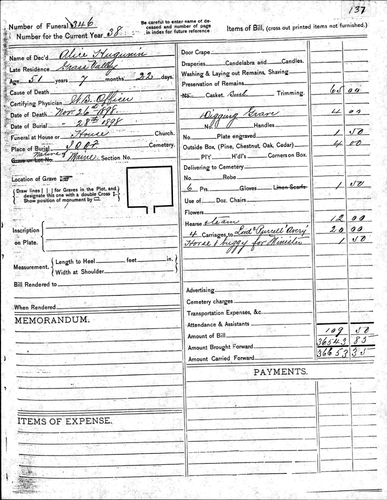 137
Number of Funeral 346
Number for the Current Year 38
Be carefu to enter name of deceased and number of page in index for future reference
Items of Bill, (cross out printed items not furnished.)
Name of Dec'd Alice Hugunin
Late Residence Grass Valley
Age 51 years 7 months 22 days.
Cause of Death
Certifying Physician
Date of Death Nov 26th 1898
Date of Burial " 27th 1898
Funeral at House or House Church.
Place of Burial I.O.O.F. Cemetery.
Grave or Lot No. Section No.
Location of Grave
Draw lines for Graves in the Plot, and designate this one with a double Cross
Show position of monument by
Inscription on Plate.
Measurement. Length to Heel feet in.
Width at Shoulder in.
Bill Rendered to
When Rendered
MEMORANDUM.
ITEMS OF EXPENSE.
Door Crape
Draperies Candelabra and Candles.
Washing & Laying out Remains, Shaving
Preservation of Remains
No. Casket. Trimming. 65 00
Digging Grave 4 00
No. Handles
Plate engraved 1 50
Outside Box, (Pine, Chestnut, Oak, Cedar) 4 00
P'l'y H'd'l's Corners on Box.
Delivering to Cemetery
No. Robe
6 Prs. Gloves Linen Scarfs 1 50
Use of Doc. Chairs
Flowers
Hearse & team 12 00
4 Carriages to 20 00
Horse & buggy for Minister 1 50
Advertising
Cemetery charges
Transportation Expenses, &c
Attendance & Assistants
Amount of Bill 109 50
Amount Brought Forward 36543 85
Amount Carried Forward 36653 35
PAYMENTS.